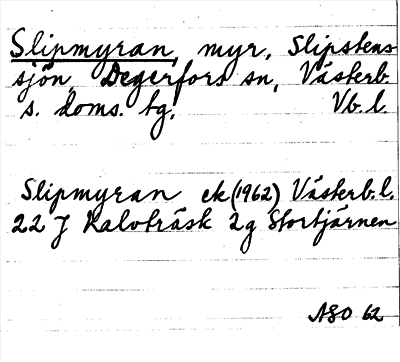 Slipmyran, myr, Slipstens-
sjön, Degerfors sn, Västerb.
s. doms. tg, Vb. l.
Slipmyran ek (1962) Västerb. l.
22 J Kalvträsk 2g Stortjärnen
ASO 62